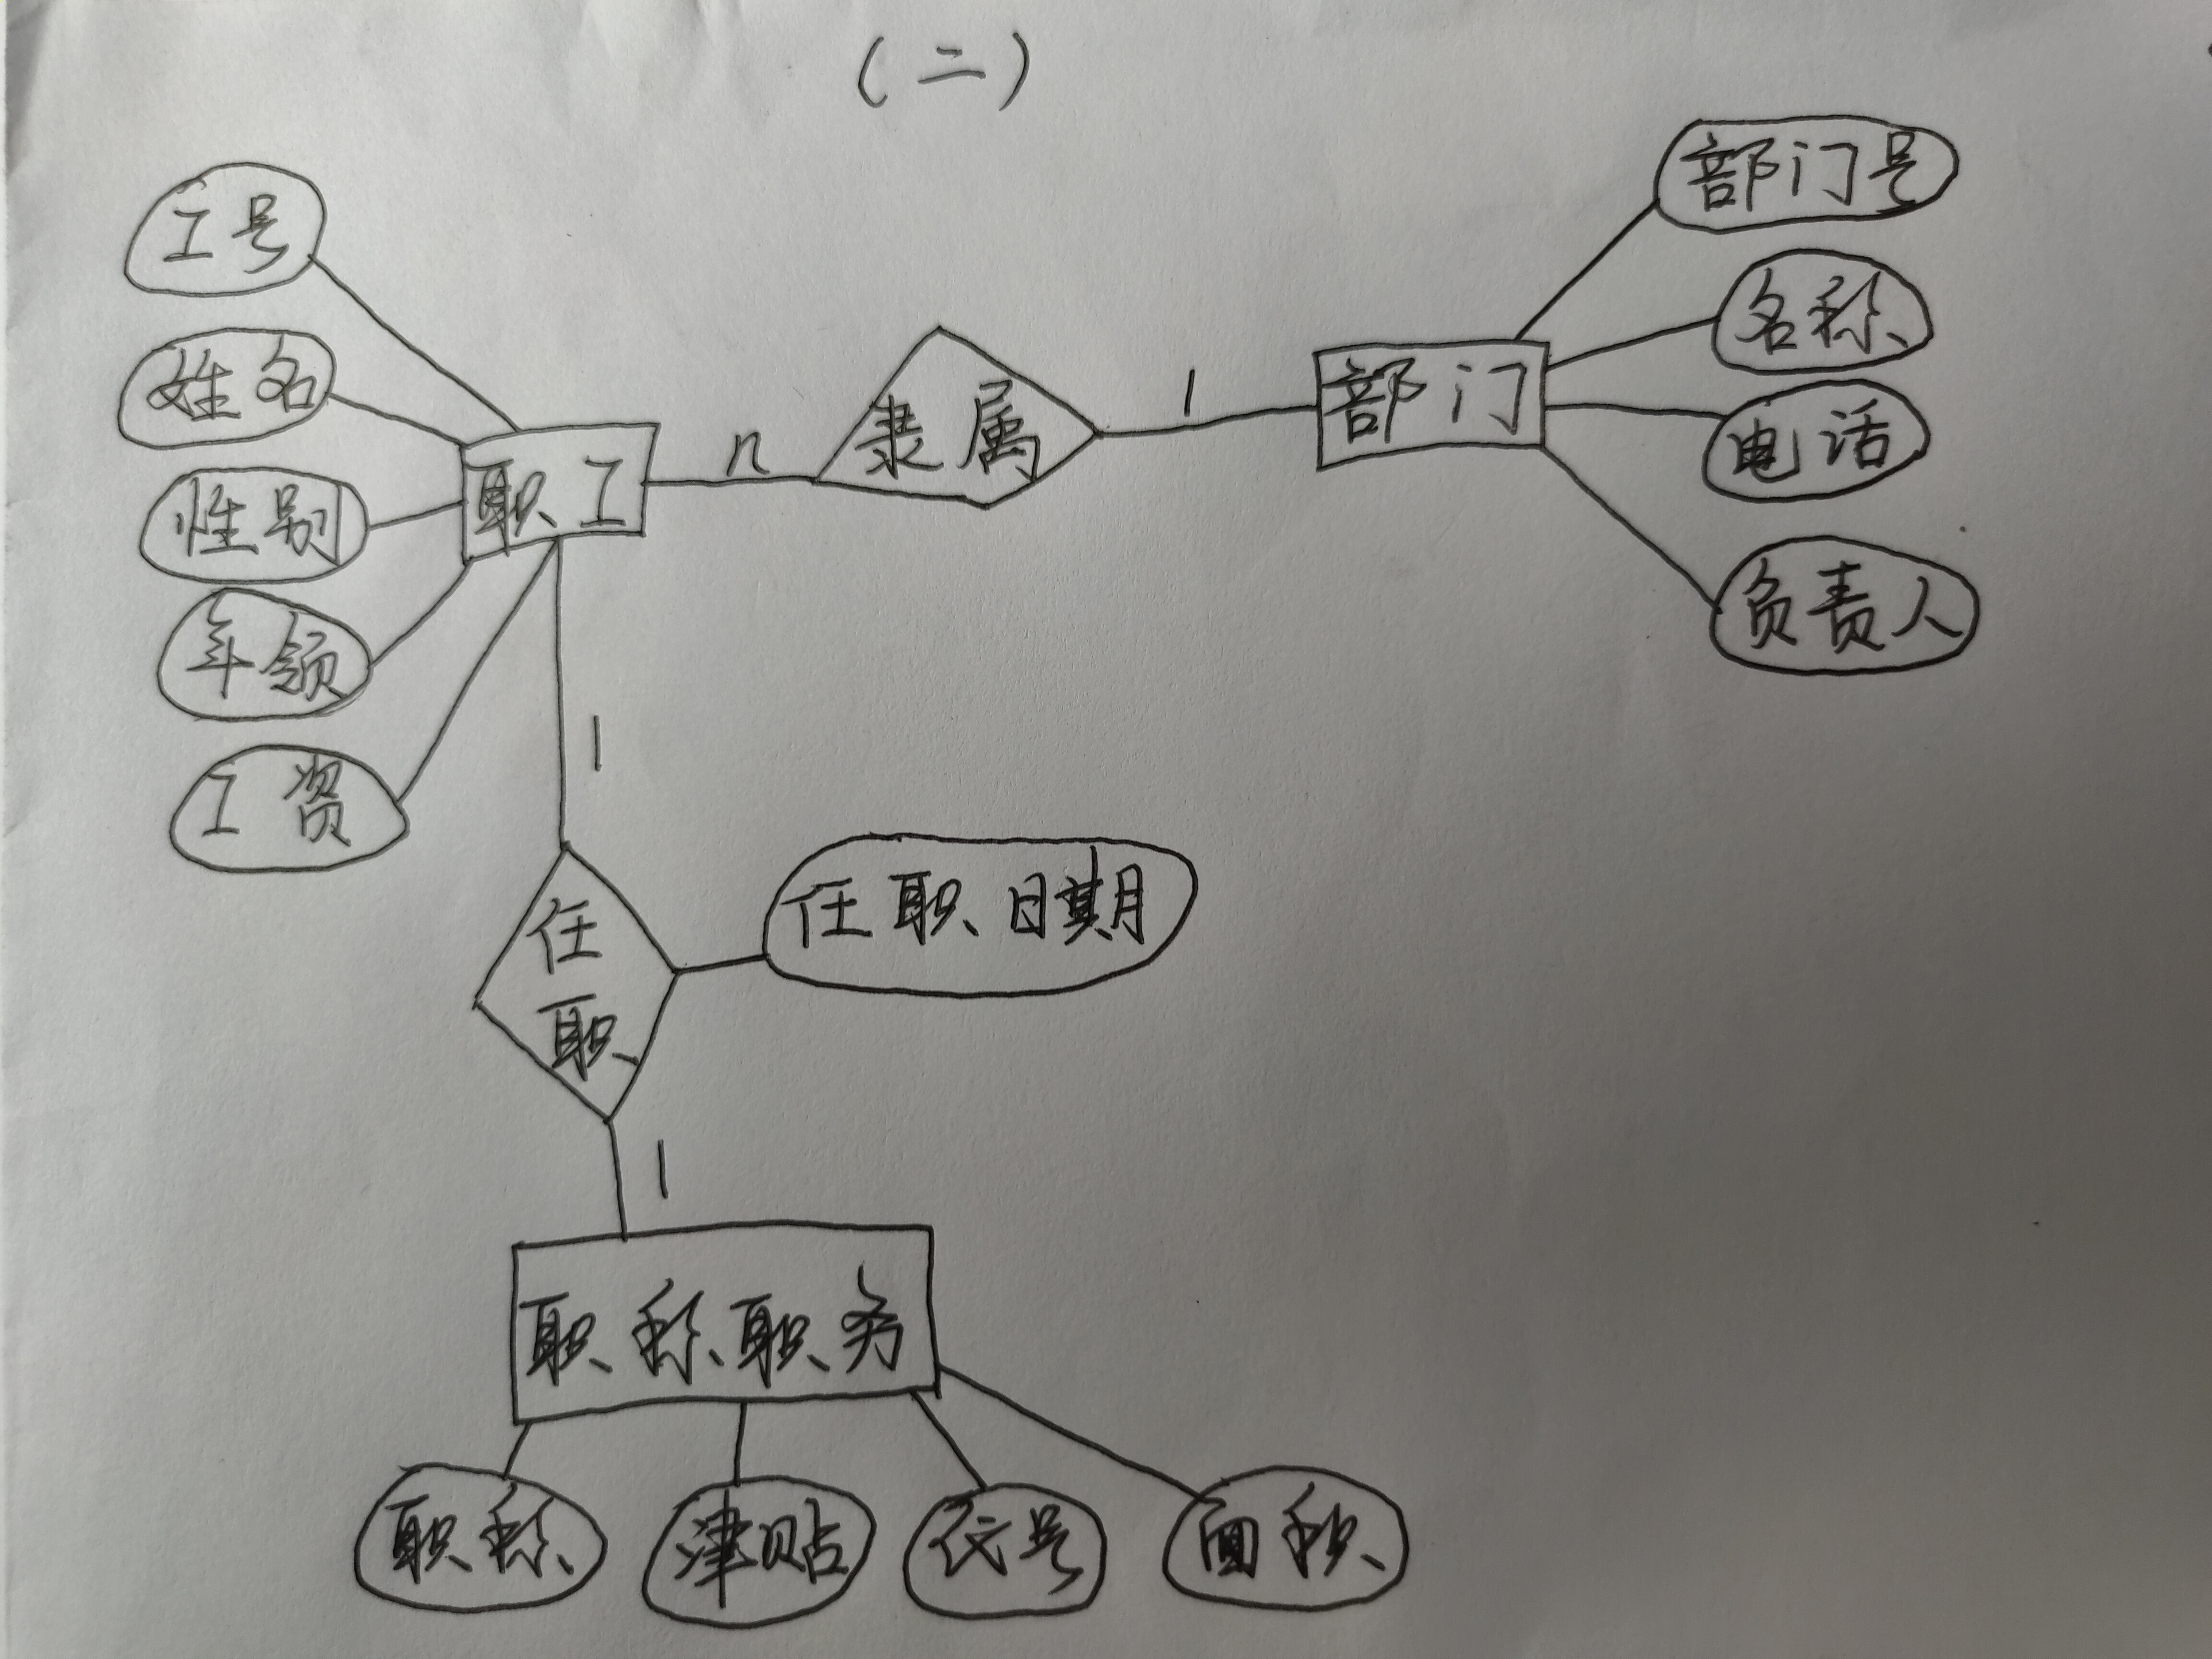 （二）
工号
姓名
性别
年领
工资
职工
n
隶属
1
部门
部门号
名称
电话
负责人
1
任职
任职日期
1
职称职务
职称
津贴
代号
面积